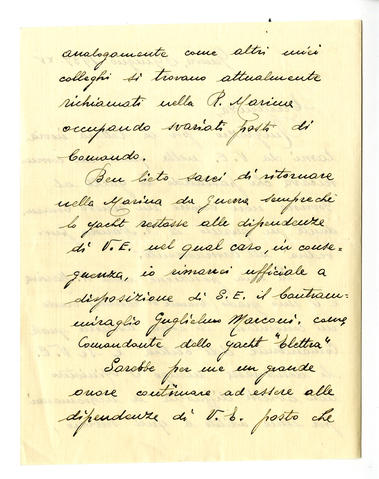 analogamente come altri miei
colleghi si trovano attualmente
richiamati nella R. Marina
occupando svariati posti di
Comando.
Ben lieto sarei di ritornare
nella Marina da guerra semprechè
lo yacht restasse alle dipendenze
di V.E. nel qual caso, in conse-
guenza, io rimarrei ufficiale a
disposizione di S.E. il Contram-
miraglio Guglielmo Marconi, come
Comandante dello yacht "Elettra"
Sarebbe per me un grande
onore continuare ad essere alle
dipendenze di V.E. posto che